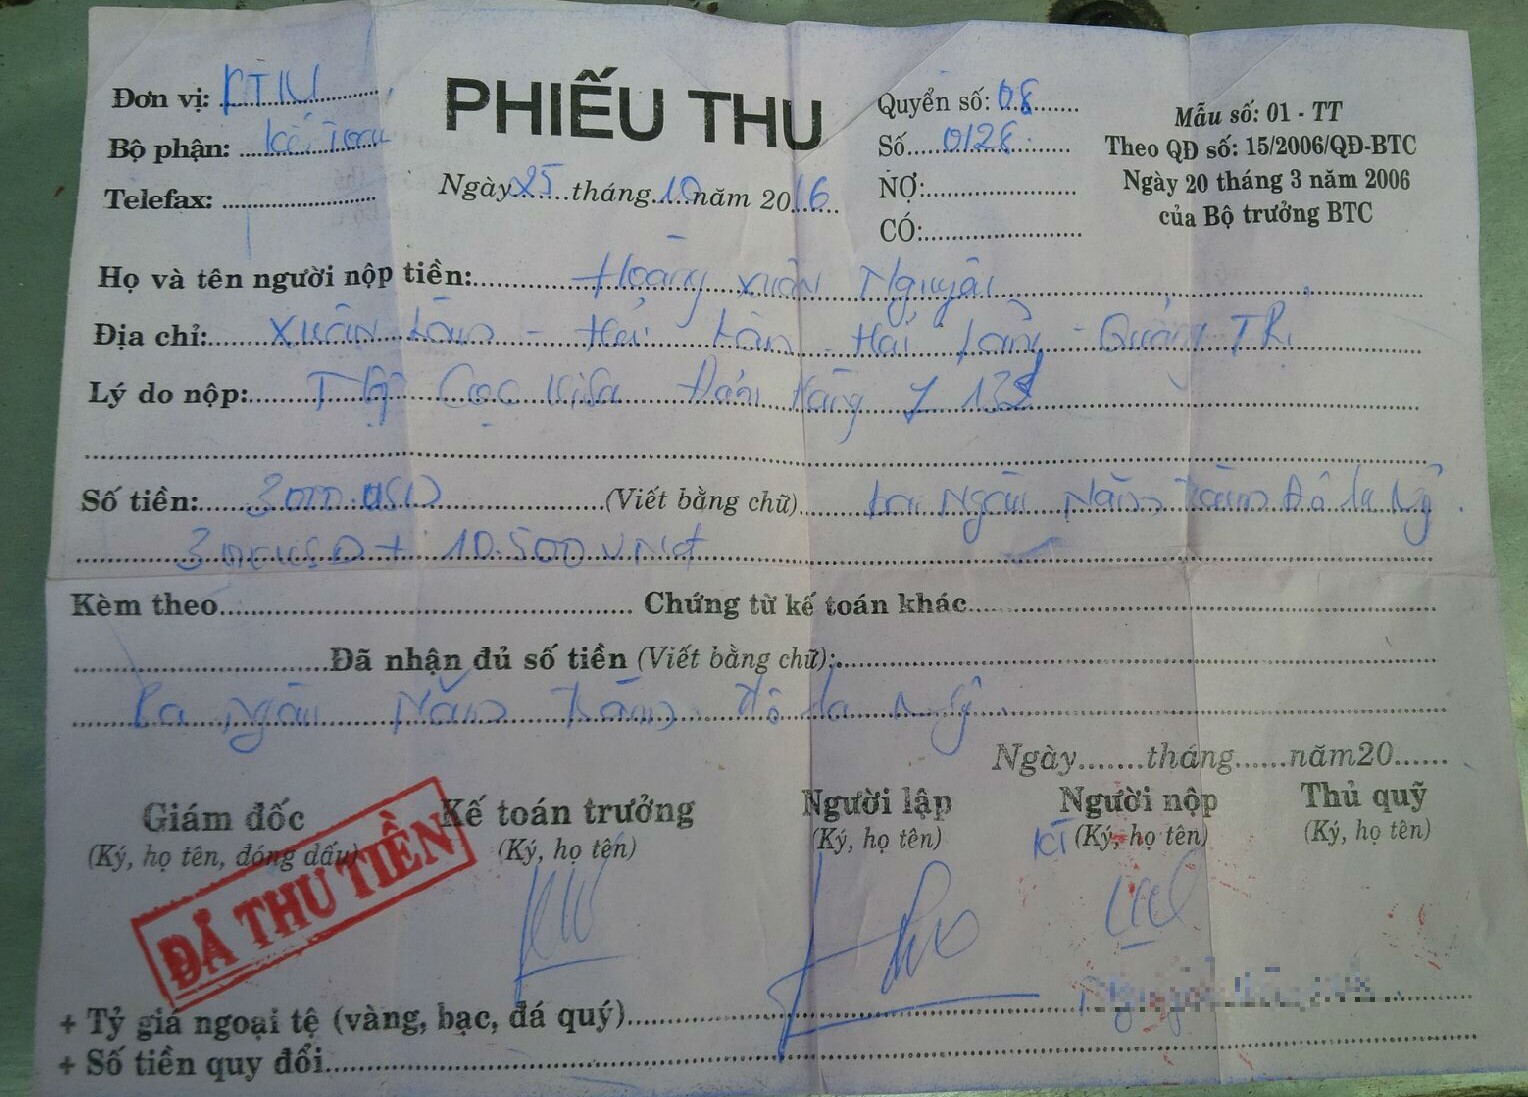 Đơn vị:
PHIẾU THU
Quyển số: 08
Mẫu số: 01 - TT
Bộ phận: Kế Toán
Số 0128
Theo QĐ số: 15/2006/QĐ-BTC
Telefax:
Ngày 25 tháng 10 năm 2016
NỢ:
Ngày 20 tháng 3 năm 2006
CÓ:
của Bộ trưởng BTC
Họ và tên người nộp tiền: Hoàng Xuân Nguyên
Địa chỉ: Xuân Lâm - Hải Lâm - Hải Lăng - Quảng TRị
Lý do nộp: Cọc Đơn Hàng
Số tiền: (Viết bằng chữ) Ngàn Năm Trăm Đô la Mỹ.
10.500 VNđ
Kèm theo Chứng từ kế toán khác
Đã nhận đủ số tiền (Viết bằng chữ):
Ba Ngàn Năm Trăm Đô la Mỹ
Ngày tháng năm 20
Giám đốc Kế toán trưởng Người lập Người nộp Thủ quỹ
(Ký, họ tên, đóng dấu) (Ký, họ tên) (Ký, họ tên) (Ký, họ tên) (Ký, họ tên)
ĐÃ THU TIỀN
+ Tỷ giá ngoại tệ (vàng, bạc, đá quý)
+ Số tiền quy đổi